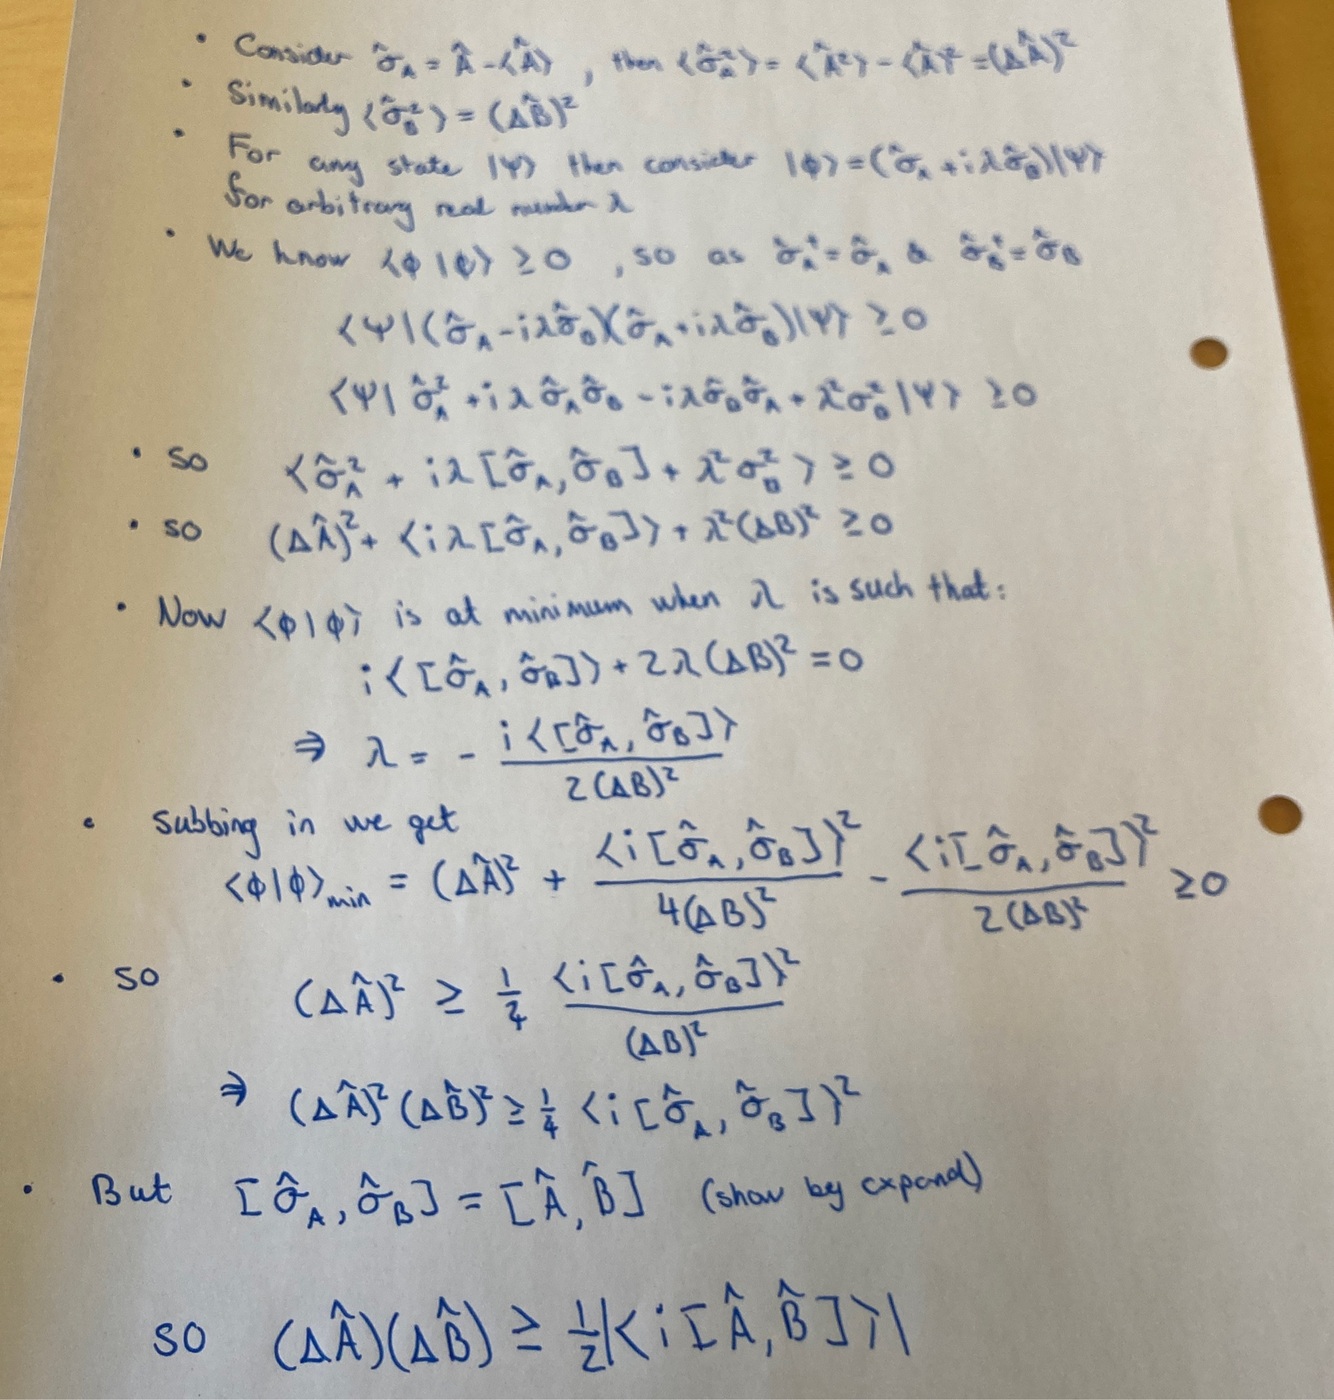 • Consider σ̂_A = Â - ⟨Â⟩ , then ⟨σ̂_A²⟩ = ⟨Â²⟩ - ⟨Â⟩² = (ΔÂ)²
• Similarly ⟨σ̂_B²⟩ = (ΔB̂)²
• For any state |Ψ⟩ then consider |ϕ⟩ = (σ̂_A + iλσ̂_B)|Ψ⟩
for arbitrary real number λ
• We know ⟨ϕ|ϕ⟩ ≥ 0 , so as σ̂_A† = σ̂_A & σ̂_B† = σ̂_B
⟨Ψ|(σ̂_A - iλσ̂_B)(σ̂_A + iλσ̂_B)|Ψ⟩ ≥ 0
⟨Ψ| σ̂_A² + iλσ̂_Aσ̂_B - iλσ̂_Bσ̂_A + λ²σ_B² |Ψ⟩ ≥ 0
• so ⟨σ̂_A² + iλ[σ̂_A, σ̂_B] + λ²σ_B²⟩ ≥ 0
• so (ΔÂ)² + ⟨iλ[σ̂_A, σ̂_B]⟩ + λ²(ΔB)² ≥ 0
• Now ⟨ϕ|ϕ⟩ is at minimum when λ is such that:
i⟨[σ̂_A, σ̂_B]⟩ + 2λ(ΔB)² = 0
⇒ λ = - i⟨[σ̂_A, σ̂_B]⟩ / 2(ΔB)²
• Subbing in we get
⟨ϕ|ϕ⟩_min = (ΔÂ)² + ⟨i[σ̂_A, σ̂_B]⟩² / 4(ΔB)² - ⟨i[σ̂_A, σ̂_B]⟩² / 2(ΔB)² ≥ 0
• so (ΔÂ)² ≥ 1/4 ⟨i[σ̂_A, σ̂_B]⟩² / (ΔB)²
⇒ (ΔÂ)²(ΔB̂)² ≥ 1/4 ⟨i[σ̂_A, σ̂_B]⟩²
• But [σ̂_A, σ̂_B] = [Â, B̂] (show by expand)
so (ΔÂ)(ΔB̂) ≥ 1/2|⟨i[Â, B̂]⟩|